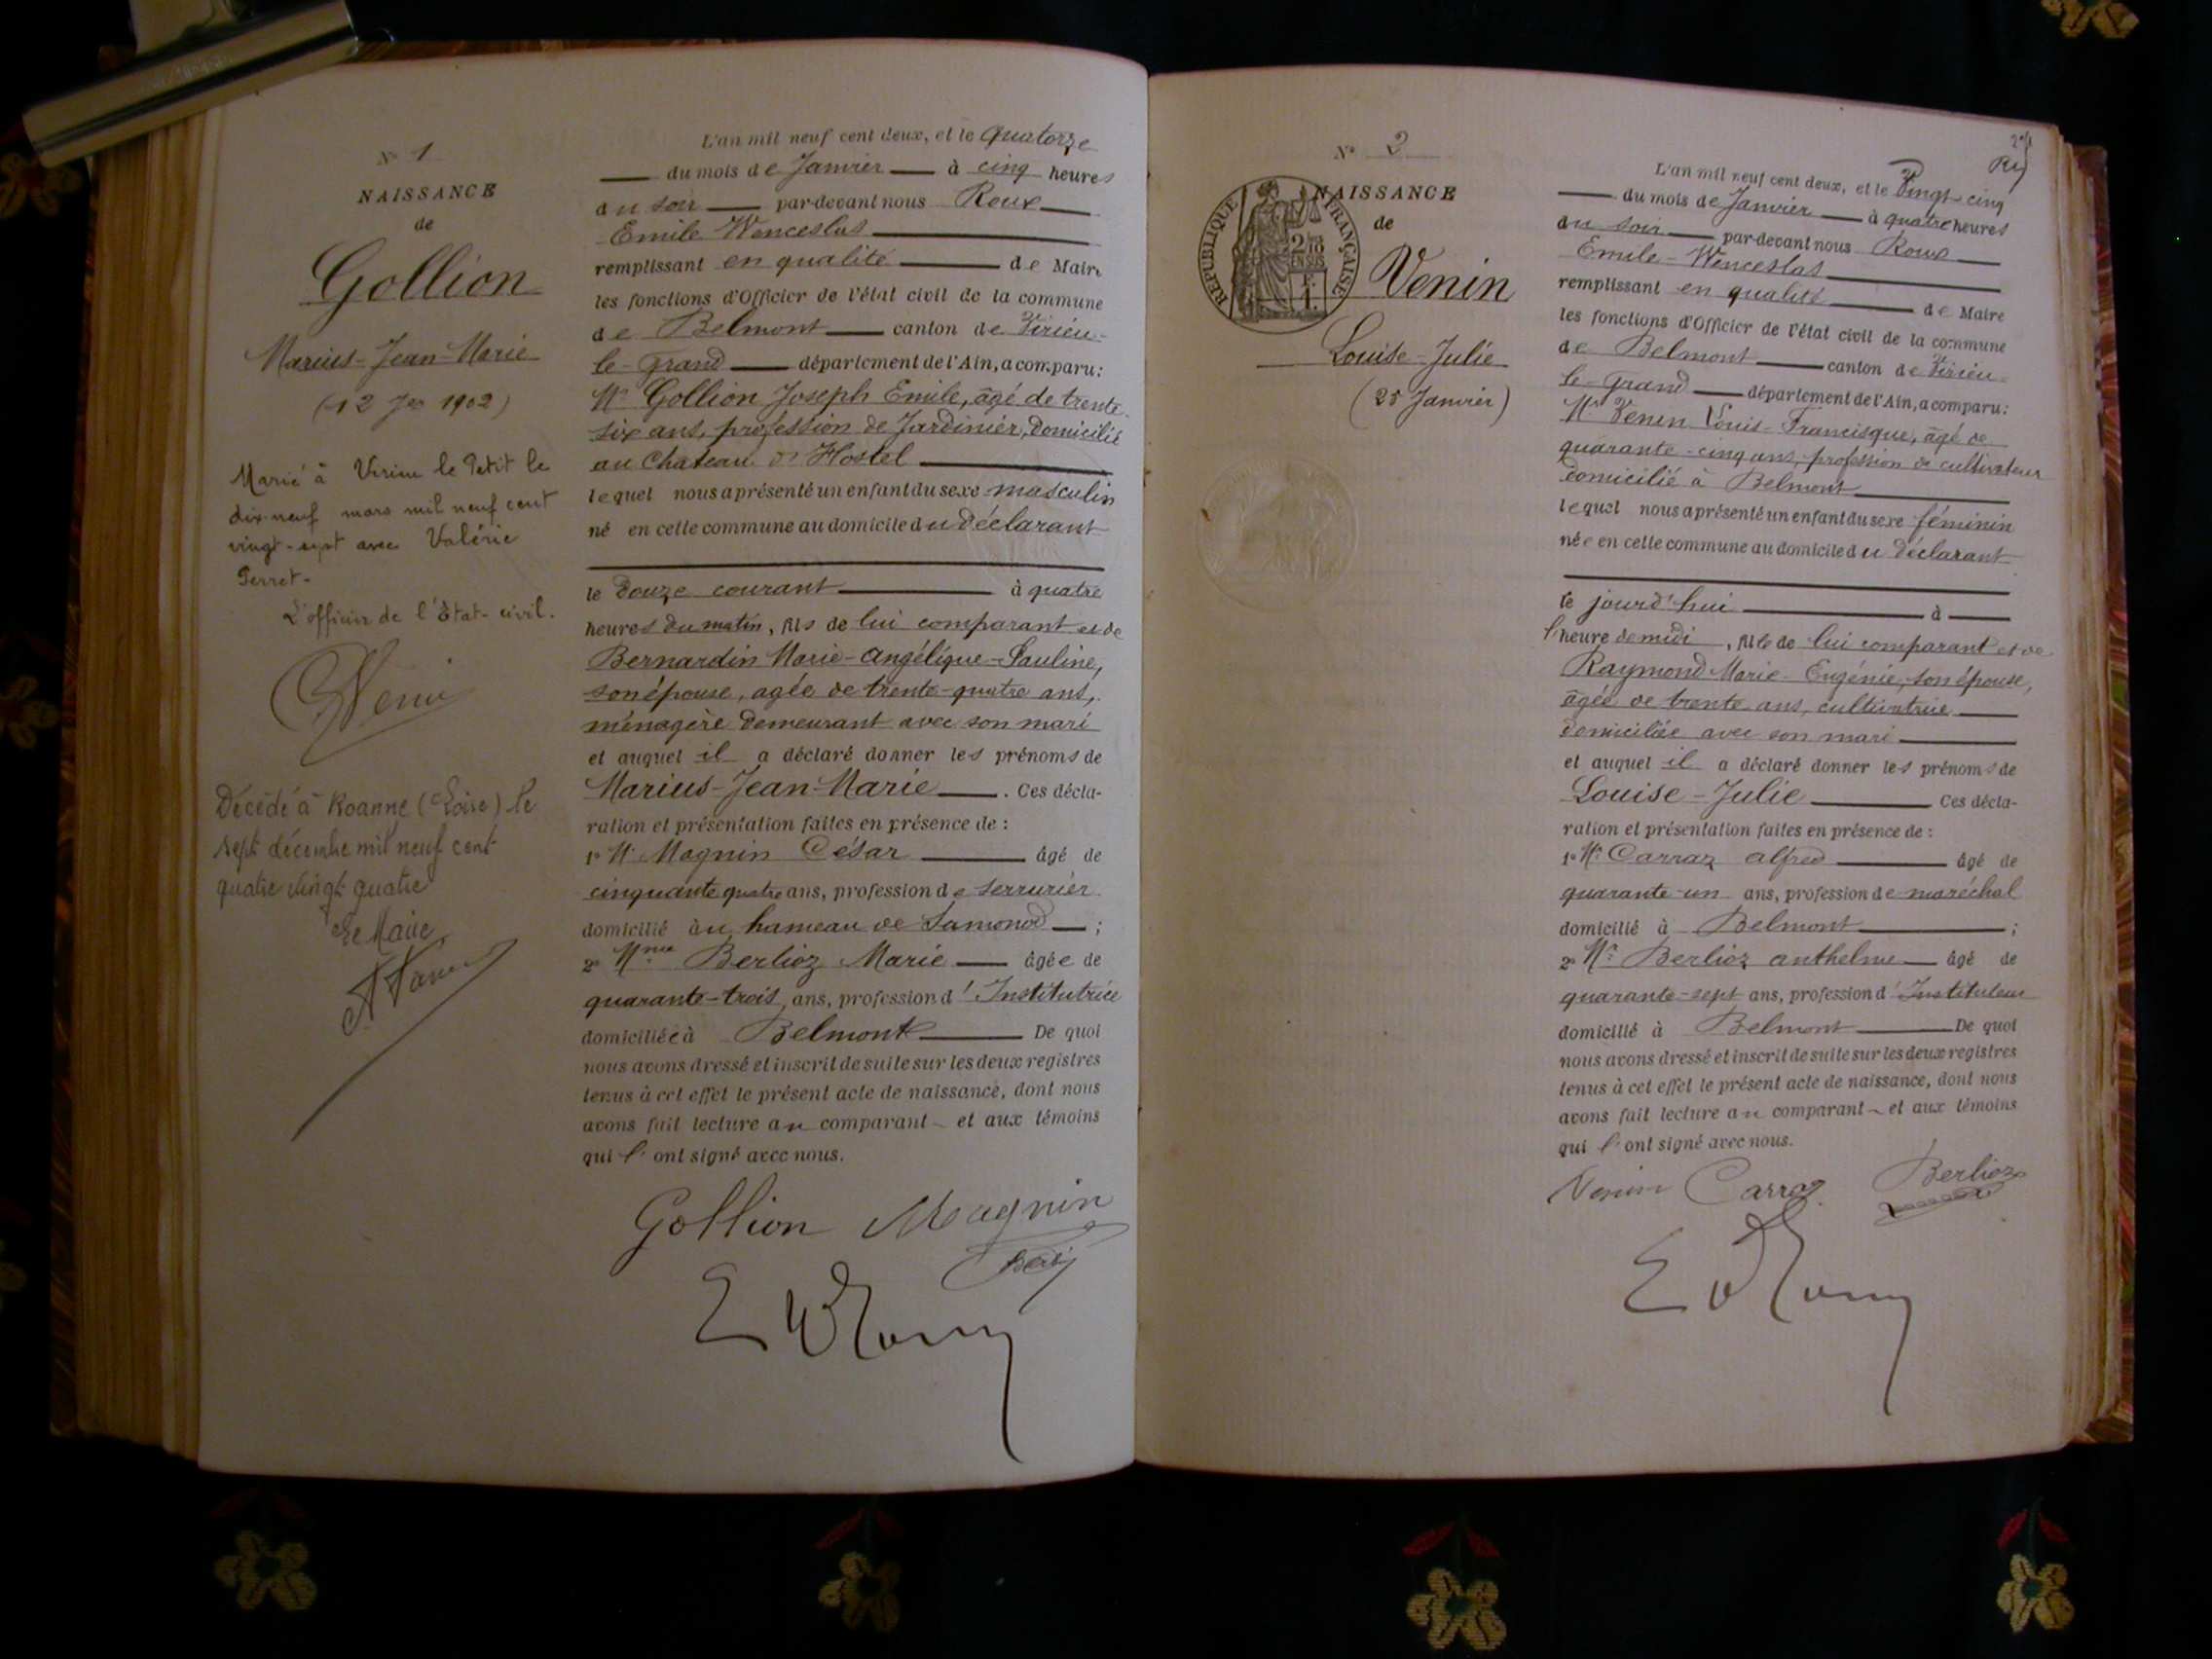 N° 1
NAISSANCE
de
Gollion
Marius-Jean-Marie
(12 Jer 1902)
Marié à Virieu le Petit le
dix-neuf mars mil neuf cent
vingt-sept avec Valérie
Perret-
L'officier de l'Etat-civil.
Décédé à Roanne (Loire) le
sept décembre mil neuf cent
quatre vingt quatre
Le Maire
L'an mil neuf cent deux, et le quatorze
du mois de Janvier à cinq heures
du soir par-devant nous Roux
Emile Wenceslas
remplissant en qualité de Maire
les fonctions d'Officier de l'état civil de la commune
de Belmont canton de Virieu-
le-Grand département de l'Ain, a comparu:
Mr Gollion Joseph Emile, âgé de trente-
six ans, profession de Jardinier, domicilié
au Chateau d'Hostel
lequel nous a présenté un enfant du sexe masculin
né en cette commune au domicile du déclarant
le douze courant à quatre
heures du matin, fils de lui comparant et de
Bernardin Marie-Angélique-Pauline,
son épouse, agée de trente-quatre ans,
ménagère demeurant avec son mari
et auquel il a déclaré donner les prénoms de
Marius-Jean-Marie. Ces décla-
ration et présentation faites en présence de :
1° Mr Magnin César âgé de
cinquante quatre ans, profession de serrurier
domicilié au hameau de Samonod ;
2° Mme Berlioz Marie âgée de
quarante-trois ans, profession d'Institutrice
domiciliée à Belmont De quoi
nous avons dressé et inscrit de suite sur les deux registres
tenus à cet effet le présent acte de naissance, dont nous
avons fait lecture au comparant et aux témoins
qui l'ont signé avec nous.
Gollion Magnin
N° 2
NAISSANCE
de
RÉPUBLIQUE FRANÇAISE
2/10 EN SUS
Venin
Louise-Julie
(25 Janvier)
L'an mil neuf cent deux, et le Vingt-cinq
du mois de Janvier à quatre heures
du soir par-devant nous Roux
Emile-Wenceslas
remplissant en qualité de Maire
les fonctions d'Officier de l'état civil de la commune
de Belmont canton de Virieu-
le-Grand département de l'Ain, a comparu:
Mr Venin Louis-Francisque, âgé de
quarante-cinq ans, profession de cultivateur
domicilié à Belmont
lequel nous a présenté un enfant du sexe féminin
née en cette commune au domicile du déclarant
le jourd'hui à
l'heure de midi, fille de lui comparant et de
Raymond Marie-Eugénie, son épouse,
âgée de trente ans, cultivatrice
domiciliée avec son mari
et auquel il a déclaré donner les prénoms de
Louise-Julie Ces décla-
ration et présentation faites en présence de :
1° Mr Carraz alfred âgé de
quarante-un ans, profession de maréchal
domicilié à Belmont ;
2° Mr Berlioz anthelme âgé de
quarante-sept ans, profession d'Instituteur
domicilié à Belmont De quoi
nous avons dressé et inscrit de suite sur les deux registres
tenus à cet effet le présent acte de naissance, dont nous
avons fait lecture au comparant et aux témoins
qui l'ont signé avec nous.
Venin Carraz Berlioz